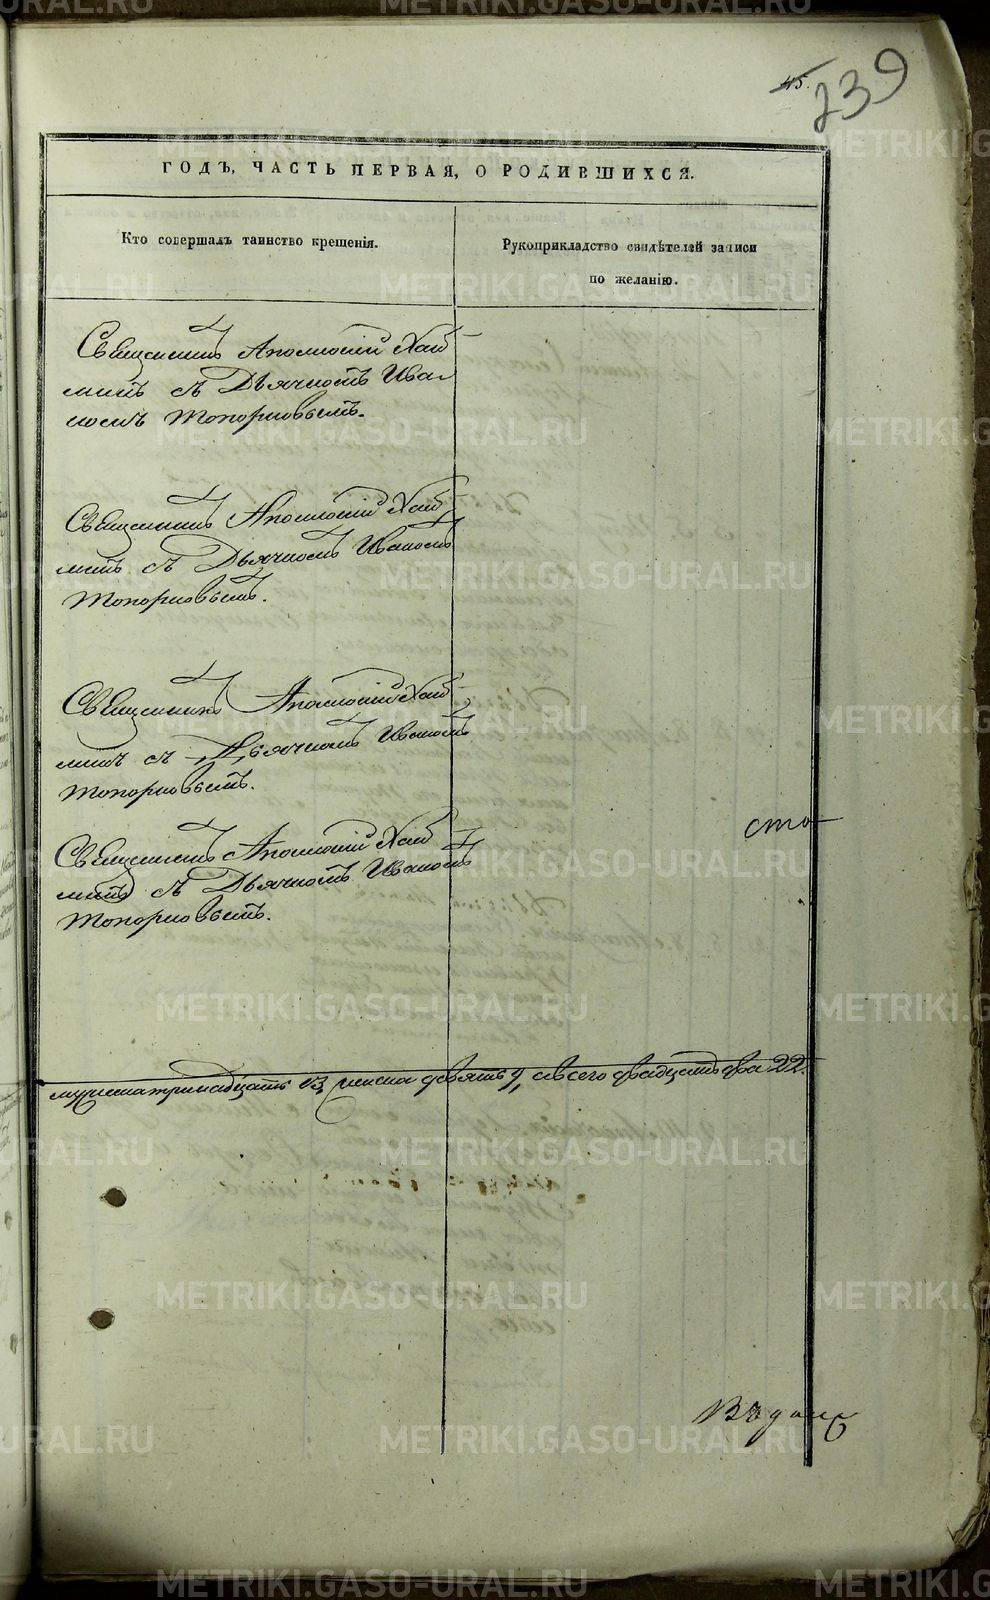 45.
239
ГОДЪ, ЧАСТЬ ПЕРВАЯ, О РОДИВШИХСЯ.
Кто совершалъ таинство крещенія.
Рукоприкладство свидѣтелей записи
по желанію.
Священникъ Аполлосій Хай
минъ съ Дьячкомъ Ива-
номъ Топорковымъ.
Священникъ Аполлосій Хай
минъ съ Дьячкомъ Иваномъ
Топорковымъ.
Священникъ Аполлосій Хай
минъ съ Дьячкомъ Иваномъ
Топорковымъ.
сто
Священникъ Аполлосій Хай
минъ съ Дьячкомъ Иваномъ
Топорковымъ.
мужеска тринадцать 13, женска девять 9, а всего двадцать два 22.
METRIKI.GASO-URAL.RU